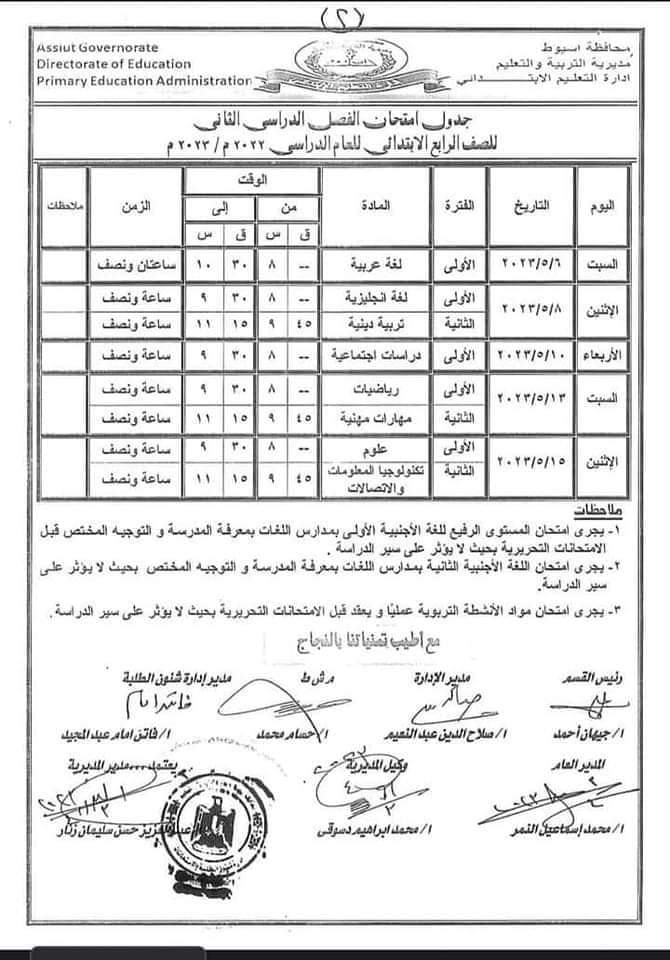 (٢)
Assiut Governorate
Directorate of Education
Primary Education Administration
محافظة اسيوط
مديرية التربية والتعليم
ادارة التعليم الابتدائى
جدول امتحان الفصل الدراسي الثانى
للصف الرابع الابتدائى للعام الدراسي ٢٠٢٢ م / ٢٠٢٣ م
اليوم التاريخ الفترة المادة الوقت الزمن ملاحظات
من إلى
ق س ق س
السبت ٢٠٢٣/٥/٦ الأولى لغة عربية -- ٨ ٣٠ ١٠ ساعتان ونصف
الإثنين ٢٠٢٣/٥/٨ الأولى لغة انجليزية -- ٨ ٣٠ ٩ ساعة ونصف
الثانية تربية دينية ٤٥ ٩ ١٥ ١١ ساعة ونصف
الأربعاء ٢٠٢٣/٥/١٠ الأولى دراسات اجتماعية -- ٨ ٣٠ ٩ ساعة ونصف
السبت ٢٠٢٣/٥/١٣ الأولى رياضيات -- ٨ ٣٠ ٩ ساعة ونصف
الثانية مهارات مهنية ٤٥ ٩ ١٥ ١١ ساعة ونصف
الإثنين ٢٠٢٣/٥/١٥ الأولى علوم -- ٨ ٣٠ ٩ ساعة ونصف
الثانية تكنولوجيا المعلومات والاتصالات ٤٥ ٩ ١٥ ١١ ساعة ونصف
ملاحظات
١- يجرى امتحان المستوى الرفيع للغة الأجنبية الأولى بمدارس اللغات بمعرفة المدرسة و التوجيه المختص قبل
الامتحانات التحريرية بحيث لا يؤثر على سير الدراسة .
٢- يجرى امتحان اللغة الأجنبية الثانية بمدارس اللغات بمعرفة المدرسة و التوجيه المختص بحيث لا يؤثر على
سير الدراسة.
٣- يجرى امتحان مواد الأنشطة التربوية عمليًا و يعقد قبل الامتحانات التحريرية بحيث لا يؤثر على سير الدراسة .
مع أطيب تمنياتنا بالنجاح
رئيس القسم مدير الإدارة م ش ط مدير إدارة شئون الطلبة
ا/ جيهان أحمد ا/ صلاح الدين عبد النعيم ا/ حسام محمد ا/ فاتن امام عبد المجيد
المدير العام وكيل المديرية يعتمد،.... مدير المديرية
ا/ محمد إسماعيل النمر ا/ محمد ابراهيم دسوقى حسن سليمان